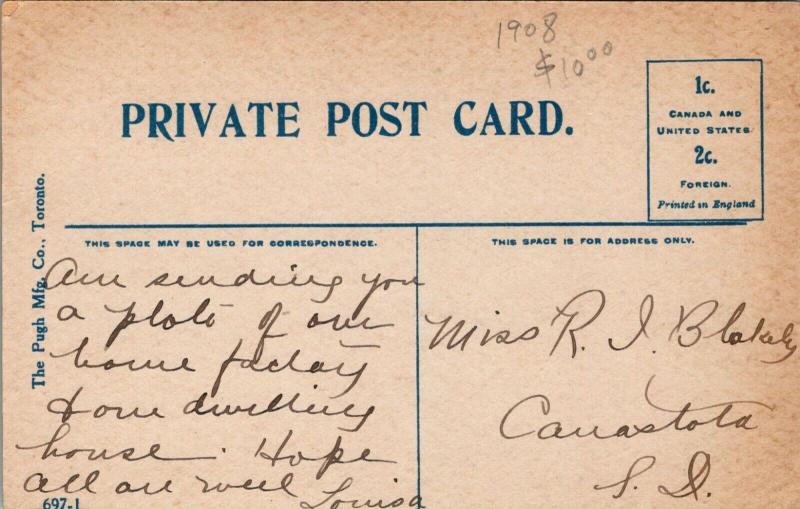 1908
$10 00
PRIVATE POST CARD.
1c.
CANADA AND
UNITED STATES
2c.
FOREIGN.
Printed in England
The Pugh Mfg. Co., Toronto.
THIS SPACE MAY BE USED FOR CORRESPONDENCE.
THIS SPACE IS FOR ADDRESS ONLY.
Am sending you
a photo of our
home factory
& our dwelling
house. Hope
all are well
Louisa
Miss R. I. Blakely
Canastota
S. D.
697-1